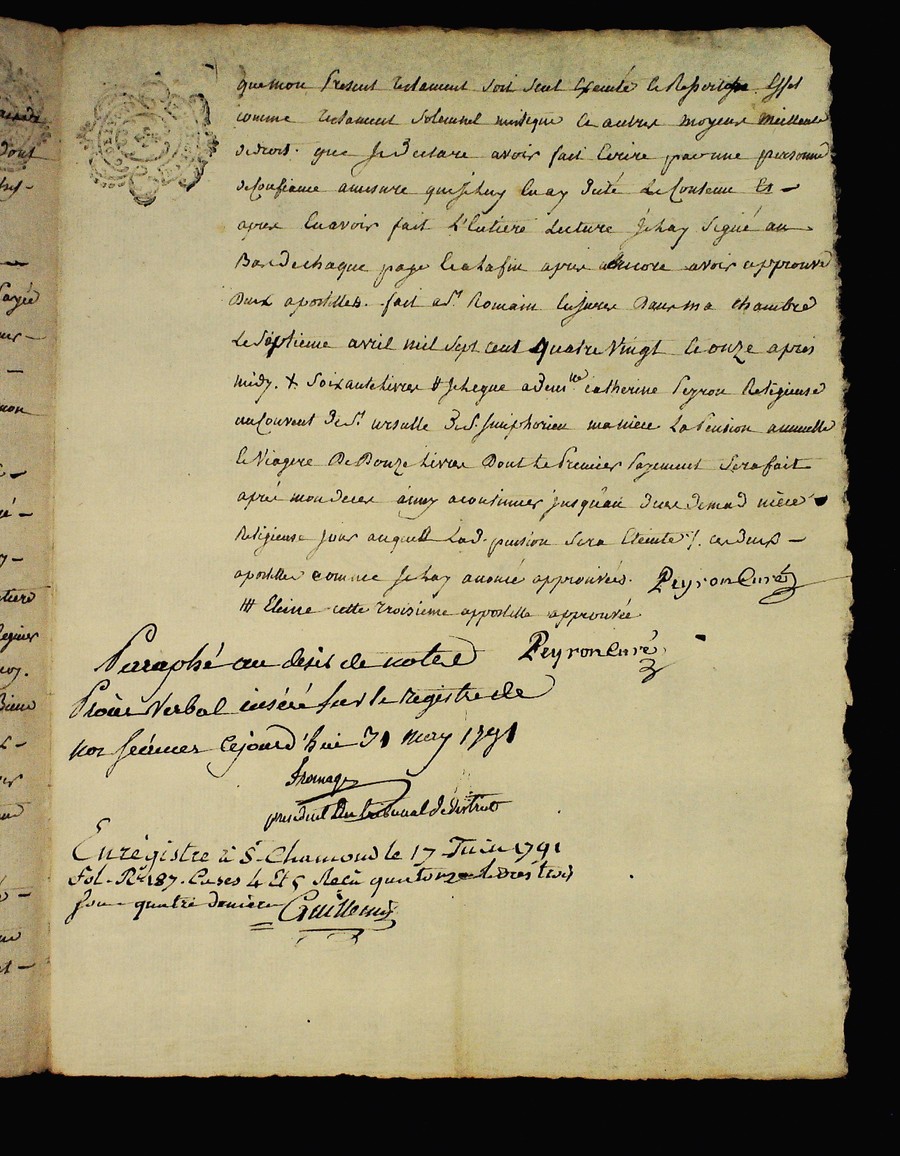 que mon present testament soit seul executé et Reporte Effet
comme testament solemnel mistique et autres moyens meilleurs
de droit. que Je Declare avoir fait Ecrire par une personne
de Confiance amesure que Je luy En ay Dicté Le Contenu Et —
apres En avoir fait L'Entiere Lecture Je L'ay Signé au
Bas de chaque page Et a la fin apres Encore avoir approuvé
Deux apostilles. fait a St Romain En Jarez Dans ma chambre
Le Septieme avril mil Sept cent Quatre Vingt Et onze apres
midy. + Soixante Livres # Je Legue a demlle catherine Peyron Religieuse
au Couvent De Ste ursulle De St Simphorien ma niéce La Pension annuelle
Et Viagere De Douze Livres Dont Le Premier Payement Sera fait
aprés mon deces ainsy a continuer Jusqu'au deces de mad niéce
Religieuse Jour auquel Lad. pension Sera Eteinte /. ces deux —
apostilles comme Je L'ay anoncé approuvées. Peyron Curé
## Eleine cette troisieme appostille approuvée
Peyron Curé
Paraphé au desir de notre
Procès Verbal inséré sur le registre de
nos séances cejourd'hui 31 may 1791
fromage
president Du tribunal de district
Enregistré à St Chamond le 17 Juin 1791
Fol. Ro 187. Cases 4 Et 5 Reçu quatorze livres trois
sous quatre deniers Guillemin